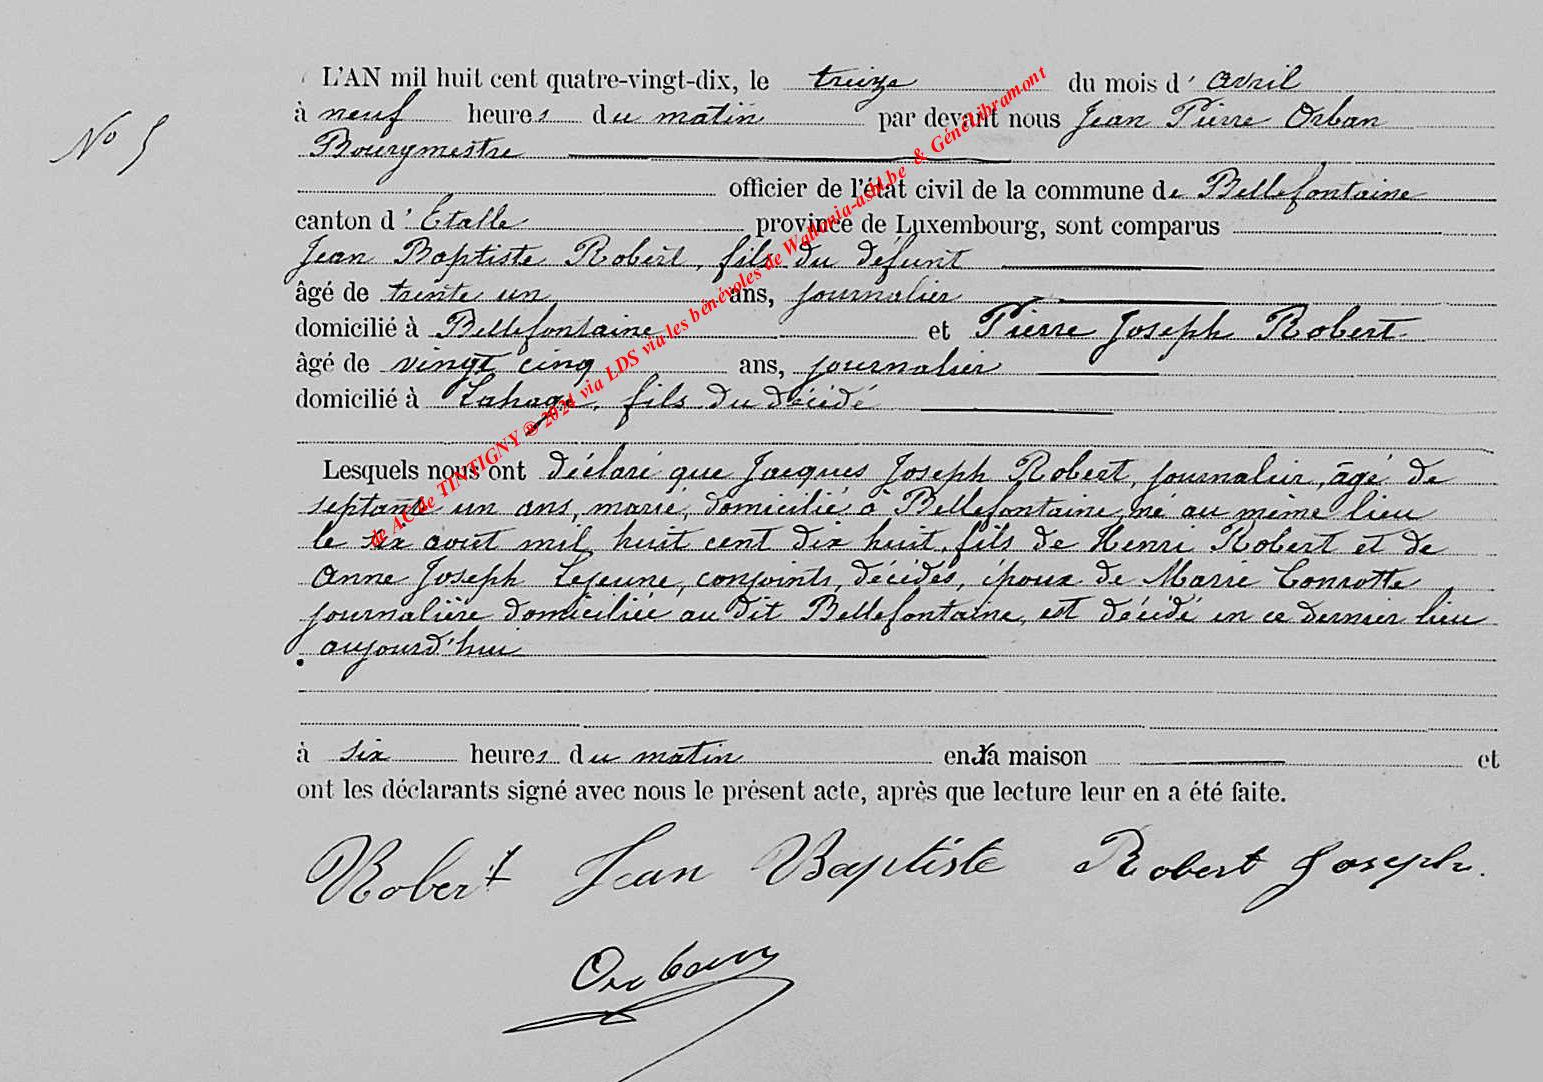 L'AN mil huit cent quatre-vingt-dix, le treize du mois d' avril
No 5
à neuf heures du matin par devant nous Jean Pierre Orban
Bourgmestre
officier de l'état civil de la commune de Bellefontaine
canton d' Etalle province de Luxembourg, sont comparus
Jean Baptiste Robert, fils du défunt
âgé de trente un ans, journalier
domicilié à Bellefontaine et Pierre Joseph Robert
âgé de vingt cinq ans, journalier
domicilié à Lahage, fils du décédé
Lesquels nous ont déclaré que Jacques Joseph Robert, journalier, âgé de
septante un ans, marié, domicilié à Bellefontaine, né au même lieu
le six août mil huit cent dix huit, fils de Henri Robert et de
Anne Joseph Lejeune, conjoints, décédés, époux de Marie Conrotte
journalière domiciliée au dit Bellefontaine, est décédé en ce dernier lieu
aujourd'hui
à six heures du matin en sa maison et
ont les déclarants signé avec nous le présent acte, après que lecture leur en a été faite.
Robert Jean Baptiste Robert Joseph.
Orban
de AC de TINTIGNY ® 2024 via LDS via les bénévoles de Wallonia-asbl.be & GénéLibramont